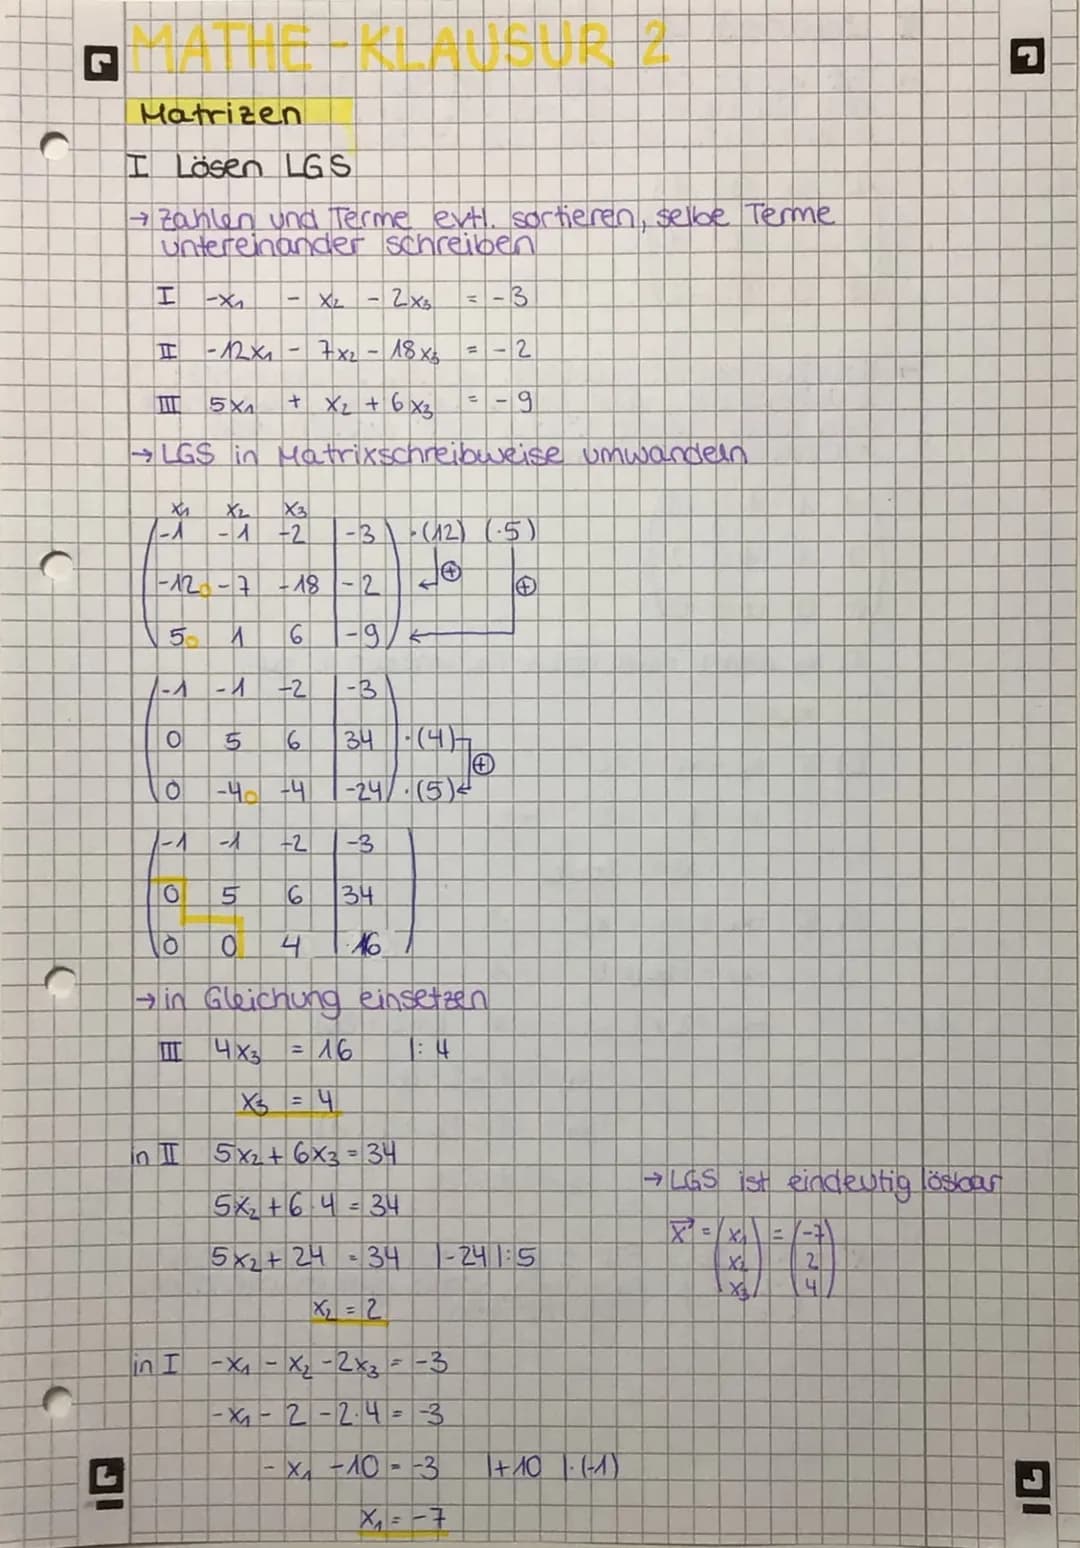 MATHE-KLAUSUR 2
Matrizen
I Lösen LGS
→ Zahlen und Terme evtl. sortieren, selbe Terme
untereinander schreiben
I -x₁ - x₂ - 2x₃ = -3
II -12x₁ - 7x₂ - 18x₃ = -2
III 5x₁ + x₂ + 6x₃ = -9
→ LGS in Matrixschreibweise umwandeln
x₁ x₂ x₃
-1 -1 -2 | -3 ·(12) (·5)
-12 -7 -18 | -2 ⊕ ⊕
5 1 6 | -9
-1 -1 -2 | -3
0 5 6 | 34 ·(4)
⊕
0 -4 -4 | -24 ·(5)
-1 -1 -2 | -3
0 5 6 | 34
0 0 4 | 16
→ in Gleichung einsetzen
III 4x₃ = 16 |: 4
x₃ = 4
in II 5x₂ + 6x₃ = 34
5x₂ + 6·4 = 34
5x₂ + 24 = 34 |-24 |:5
x₂ = 2
→ LGS ist eindeutig lösbar
x⃗ = (x₁) = (-7)
x₂ 2
x₃ 4
in I -x₁ - x₂ - 2x₃ = -3
-x₁ - 2 - 2·4 = -3
-x₁ - 10 = -3 |+10 |·(-1)
x₁ = -7